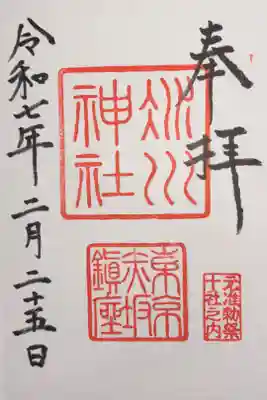 奉拝
氷川
神社
東京
赤坂
鎮座
元准勅祭
十社之内
令和七年二月二十五日